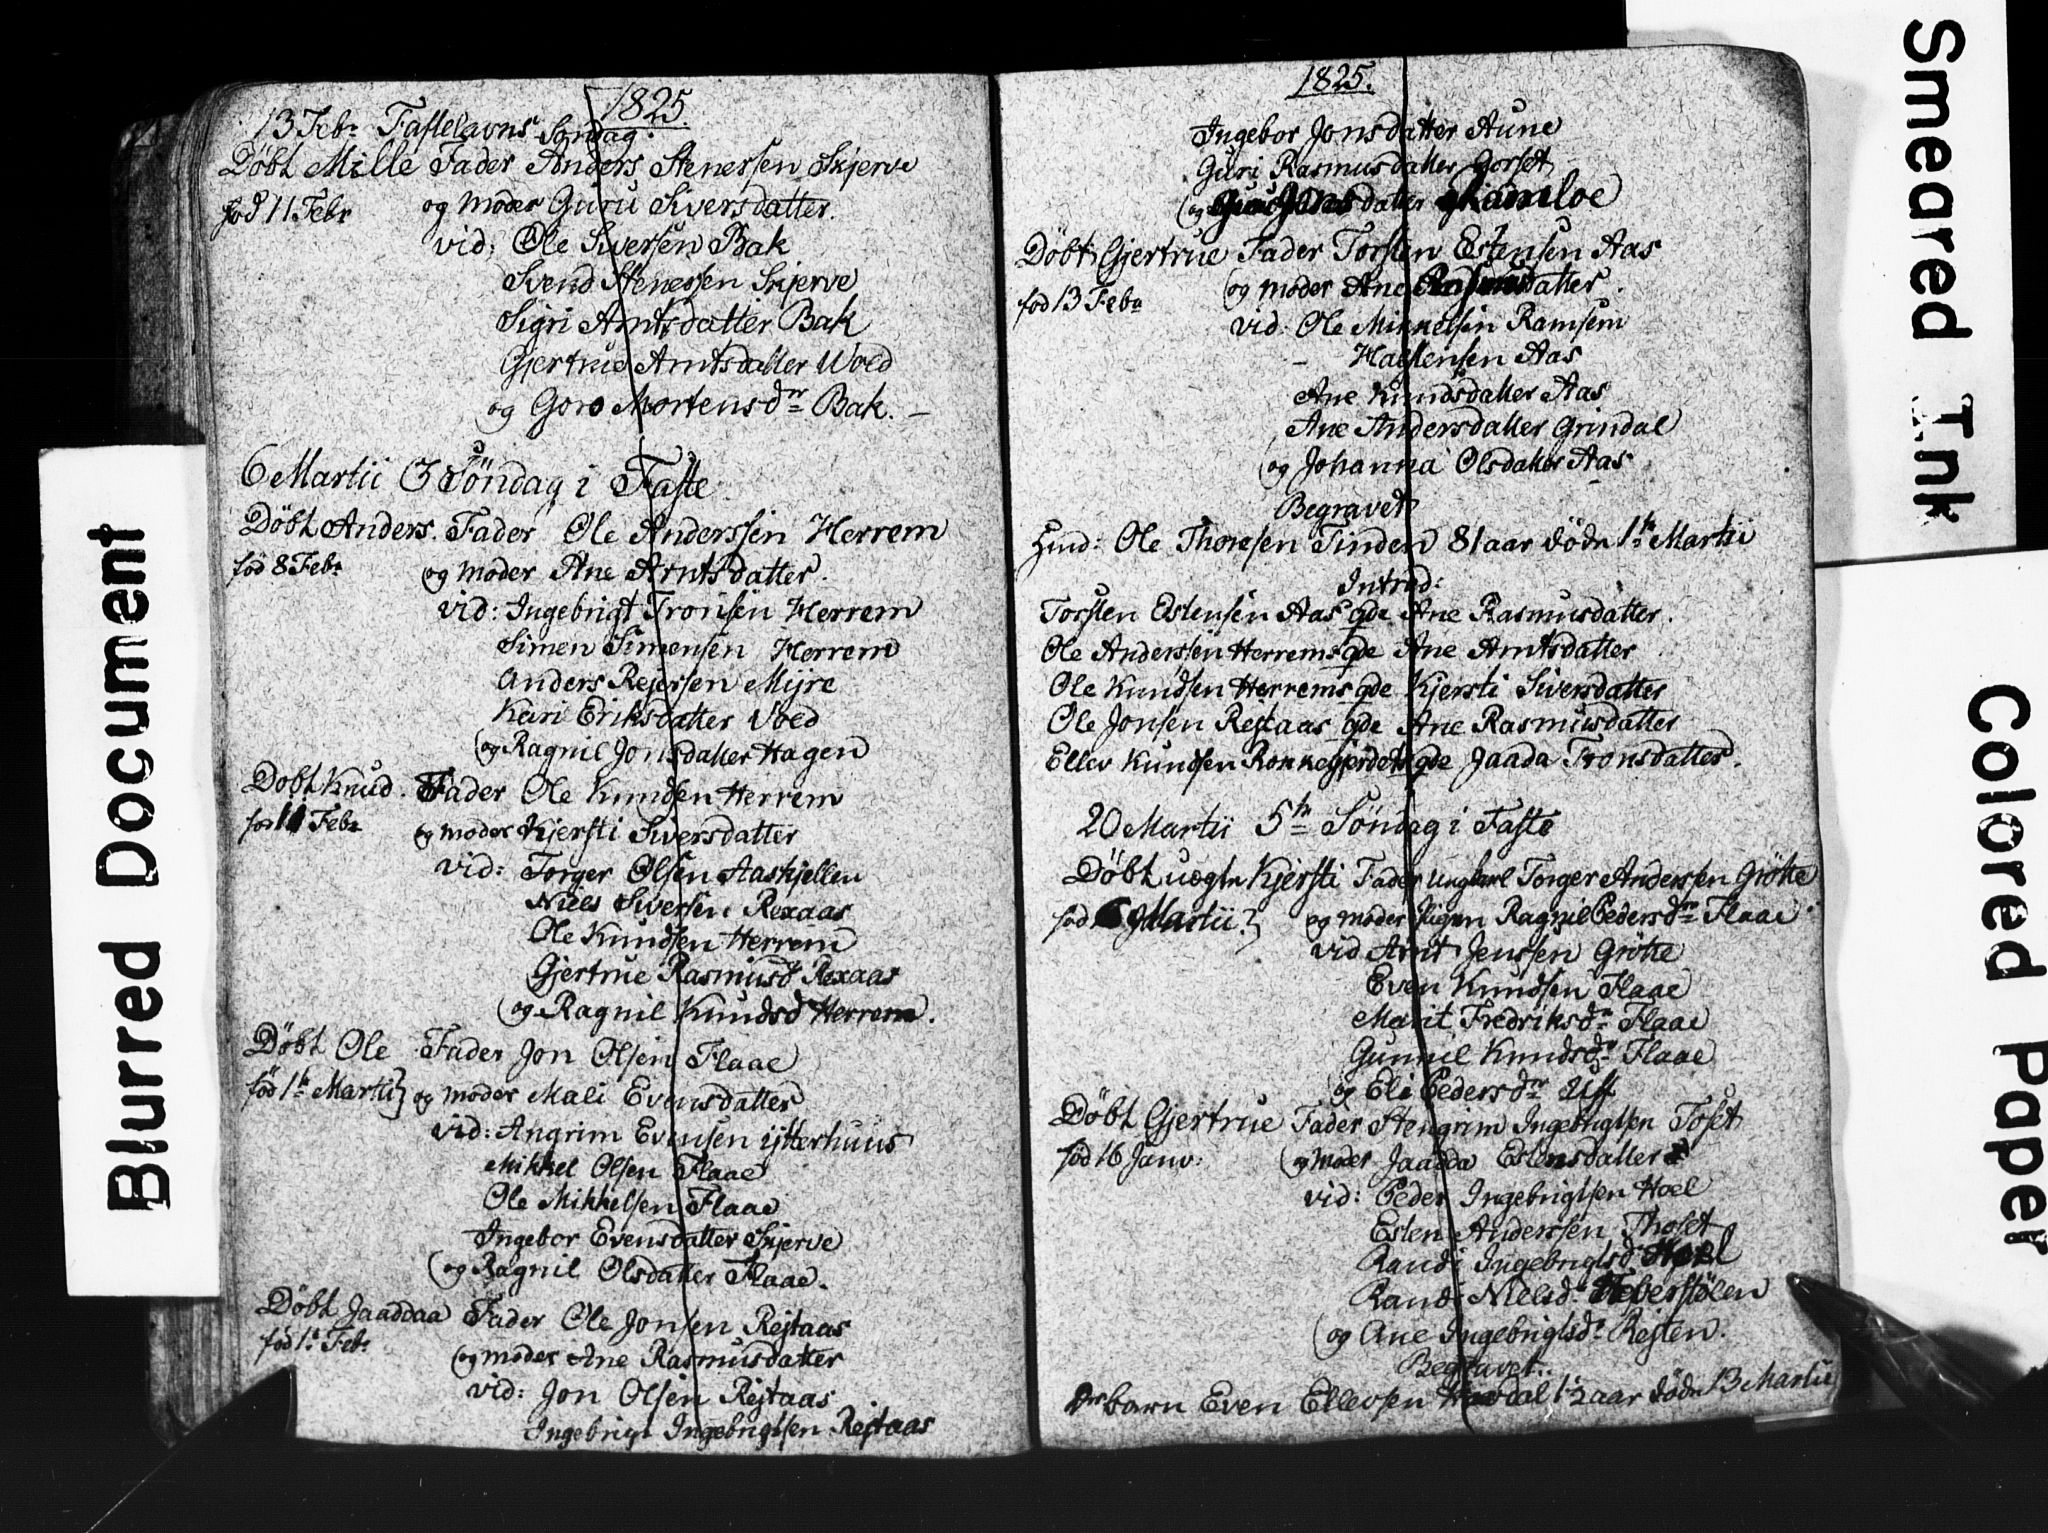 1825.
13 Febr Fastelavns Søndag.
Døbt Mille Fader Anders Stenersen Skjerve
fød 11 Febr og moder Guru Siversdatter.
vid: Ole Siversen Bak
Svend Stenersen Skjerve
Sigri Arntsdatter Bak
Gjertrue Arntsdatter Voed
og Goro Mortensdr Bak. –
6 Martii 3 Søndag i Faste
Døbt Anders. Fader Ole Anderssen Herrem
fød 8 Febr og moder Ane Arntsdatter.
vid: Ingebrigt Tronsen Herrem
Simen Simensen Herrem
Anders Rejersen Mÿre
Kari Eriksdatter Voed
og Ragnil Jonsdatter Hagen
Døbt Knud. Fader Ole Knudsen Herrem
fød 11 Febr og moder Kjersti Siversdatter
vid: Torger Olsen Aaskjellen
Niels Siversen Rexaas
Ole Knudsen Herrem
Gjertrue Rasmusd Rexaas
og Ragnil Knudsd Herrem.
Døbt Ole Fader Jon Olsen Flaae
fød 1te Martii} og moder Mali Evensdatter
vid: Angrim Evensen ÿtterhuus
Mikkel Olsen Flaae
Ole Mikkelsen Flaae
Ingebor Evensdatter Skjerve
og Ragnil Olsdatter Flaae.
Døbt Jaaddaa Fader Ole Jonsen Rejtaas
fød 1te Febr og moder Ane Rasmusdatter
vid: Jon Olsen Rejtaas
Ingebrigt Ingebrigtsen Rejtaas
1825.
Ingebor Jonsdatter Aune
Guri Rasmusdatter Gorset
og datter Ramloe
Døbt Gjertrue Fader Torsten Estensen Aas
fød 13 Febr og moder Ane Rasmusdatter.
vid: Ole Mikkelsen Ramsem
– Estensen Aas
Ane Knudsdatter Aas
Ane Andersdatter Grindal
og Johanna Olsdatter Aas
Begravet
Ole Thoresen Tinden 81 aar døde 1te Martii
Introd:
Torsten Estensen Aas qde Ane Rasmusdatter.
Ole Anderssen Herrems qde Ane Arntsdatter
Ole Knudsen Herrems qde Kjersti Siversdatter
Ole Jonsen Rejtaas qde Ane Rasmusdatter
Ellev Knudsen Rønnegjerdet qde Jaada Tronsdatter.
20 Martii 5te Søndag i Faste
Døbt uægte Kjersti Fader ungkarl Torger Andersen Grötte
fød 6 Martii} og moder Pigen Ragnil Pedersdr Flaae
vid Arnt Jenssen Grötte
Even Knudsen Flaae
Marit Fredriksdr Flaae
Gunnil Knudsdr Flaae
og Eli Pedersdr
Døbt Gjertrue Fader Stengrim Ingebrigtsen Toset
fød 16 Janv: og moder Jaadda Estensdatter
vid: Peder Ingebrigtsen Hoel
Esten Anderssen Thoset
Randi Ingebrigtsd Hoel
Randi Nielsd Heverstölen
og Ane Ingebrigtsdr Rejten.
Begravet.
barn Even Ellevsen 1½ aar døde 13 Martii
Blurred Document
Smeared Ink
Colored Paper